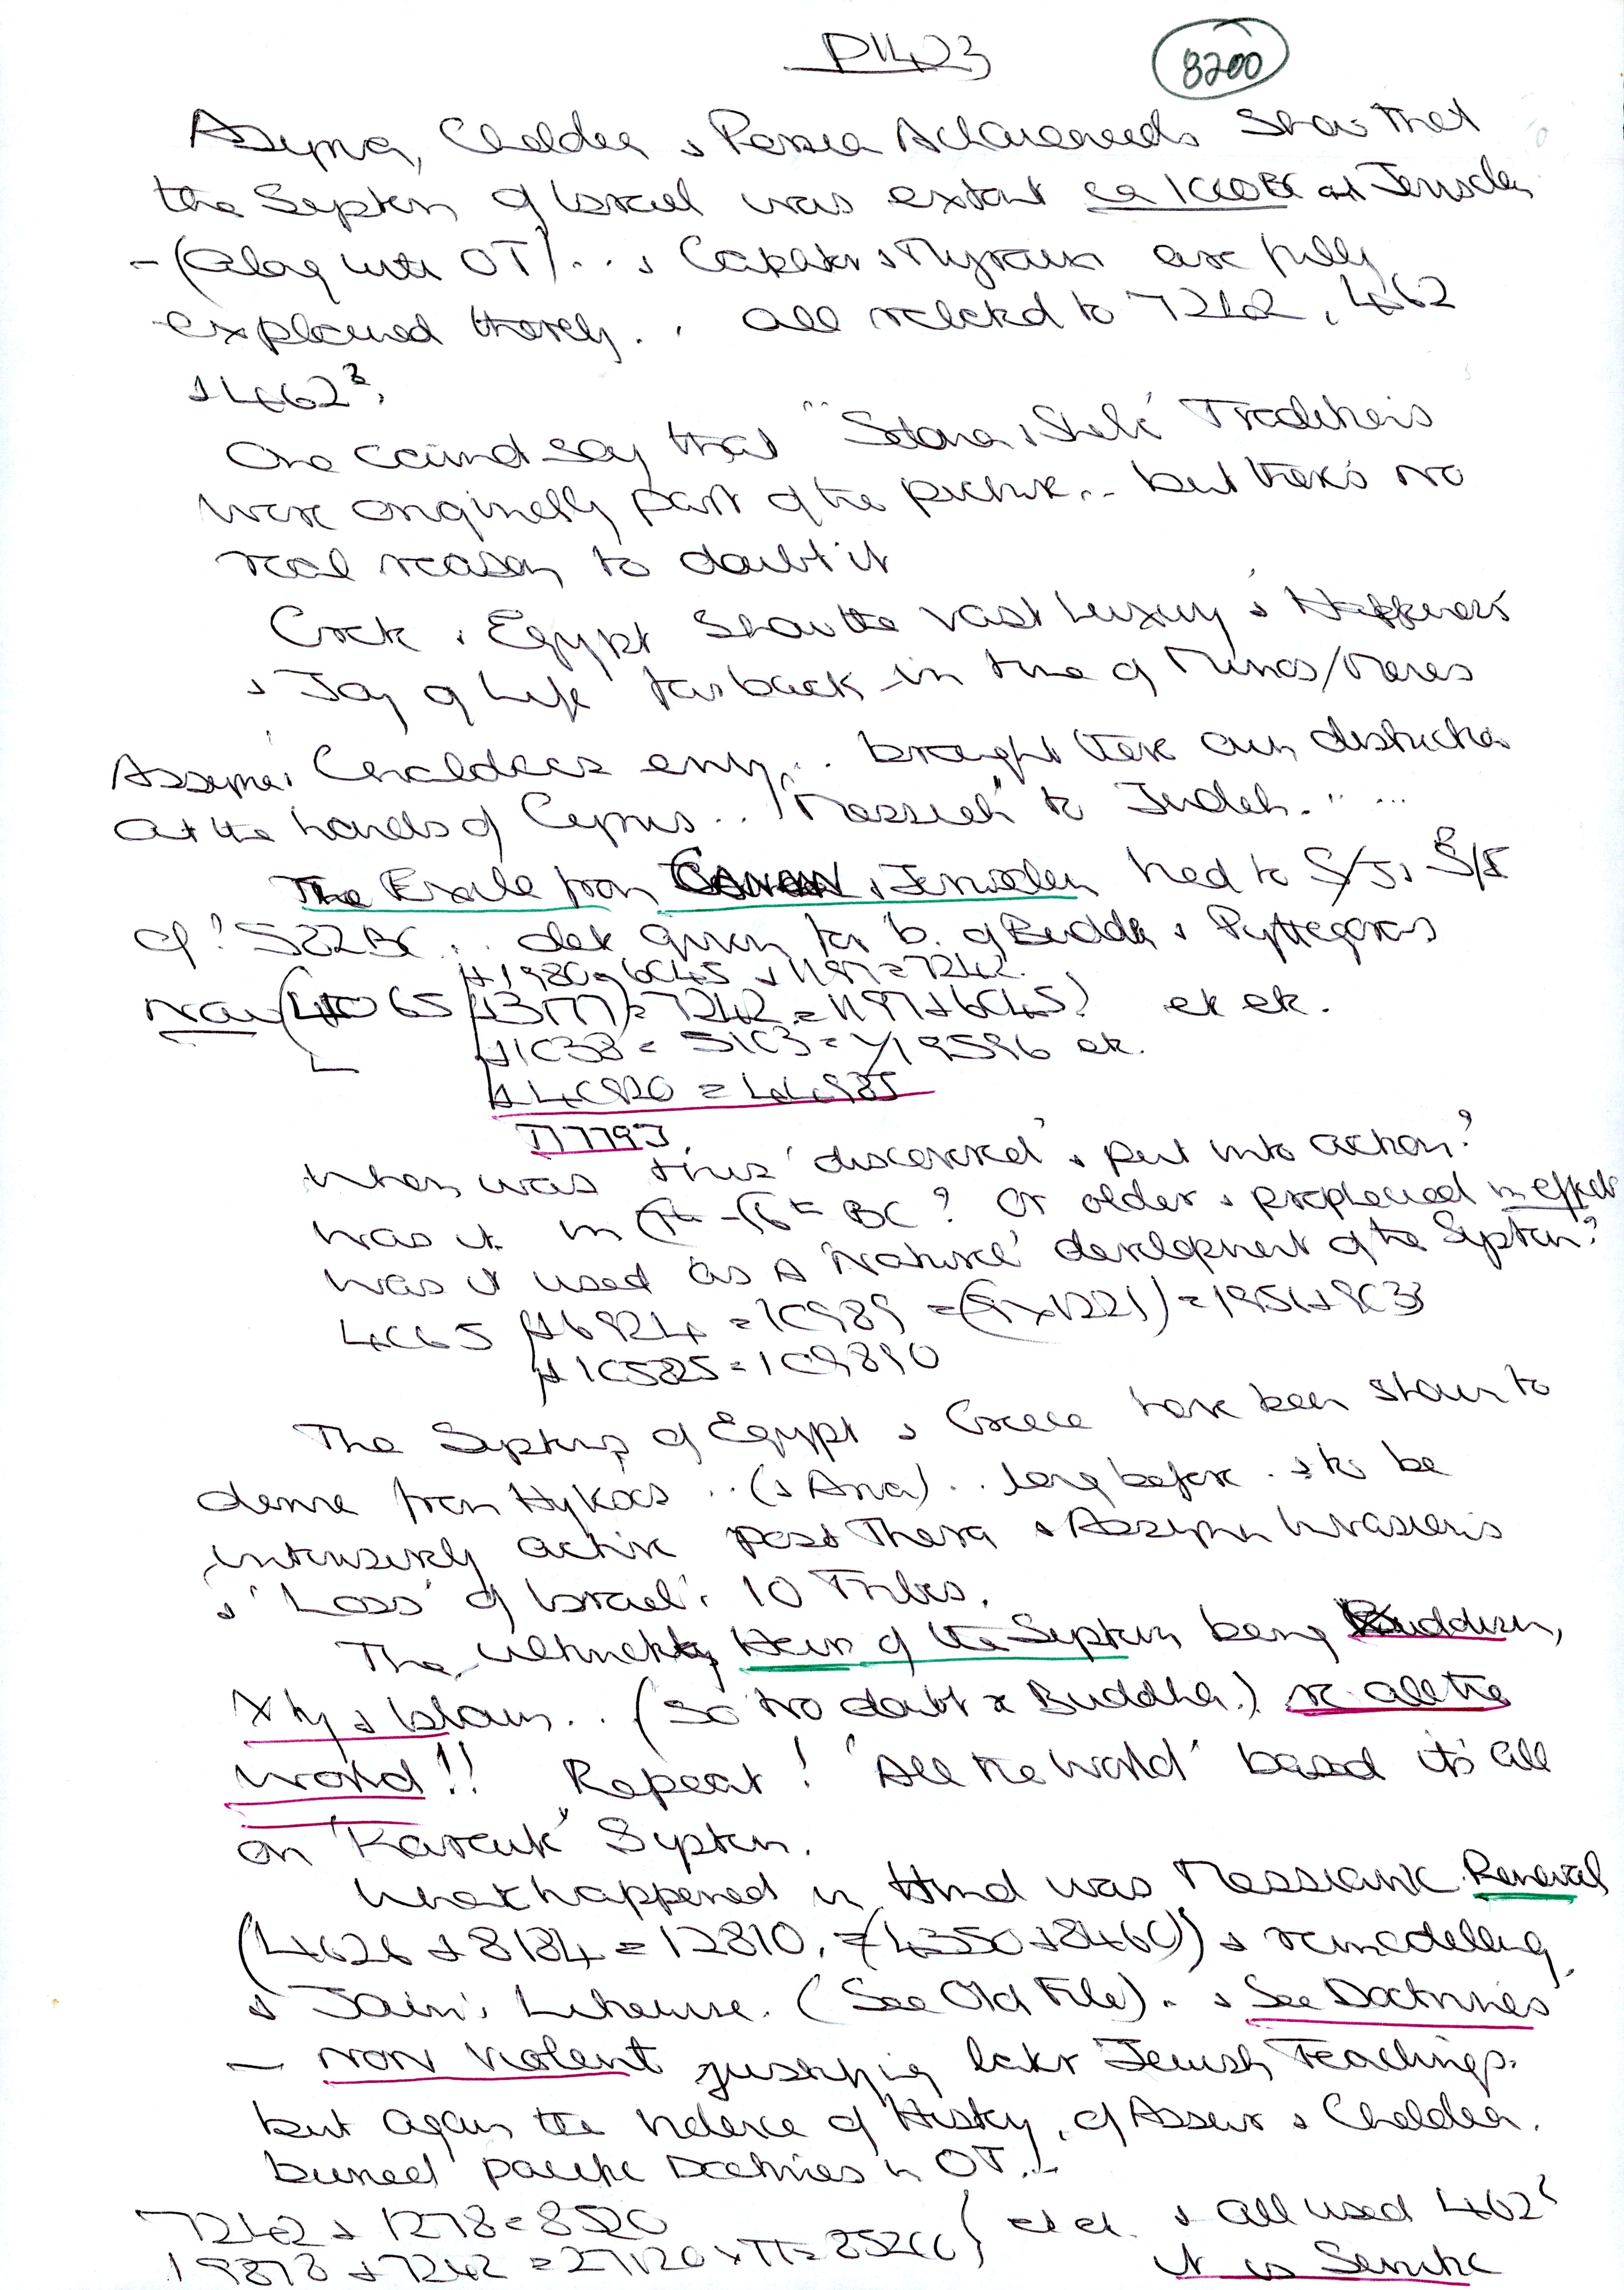 P1423
8200
Assyria, Chaldea & Persia Achaemenids show that
the System of Israel was extant ca 1000BC at Jerusalem
- (along with OT) ... & are fully
explained thereby. . all related to 7242, 462
& 462³.
One cannot say that "Satana & Traditions
were originally part of the picture... but there's no
real reason to doubt it
Crete & Egypt show the vast Luxury & Happiness
& Joy of Life far back in time of Minos/Menes
Assyria & Chaldeas envy... brought there own destruction
at the hands of Cyrus... "Messiah" to Judah. " ...
The Exile from & Jerusalem led to S/J &
of ? 522BC .. date given for b. of Buddha & Pythagoras
+1980=6045 +1197=7242.
Now (4065 +3177)=7242=1197+6045) etc etc.
+1038 = 5103 = √19596 etc.
+40920 = 44985
When was this 'discovered' & put into action?
Was it in BC? Or older & in effect
Was it used as a 'natural' development of the System?
4065 +6924 = 10989 = (9x1221) = 1956+9033
+105825=109890
The Systems of Egypt & Greece have been shown to
derive from Hyksos .. (& Aria) .. long before . & to be
intensively active post Thera & Assyrian Invasions
& 'Loss' of Israel's 10 Tribes.
The ultimately Heirs of the System being Buddism,
Xty & Islam.. (So no doubt re Buddha.) ie all the
World!! Repeat! 'All the World' based it's all
on 'Karnak' System.
What happened in Hind was Messianic Renewal
(4626 + 8184 = 12810. = (4350+8460)) & remodelling
& Jains Likewise. (See Old File). & See Doctrines
- non violent justifying later Jewish Teachings.
but again the violence of History, of Assur & Chaldea.
buried pacific Doctrines in OT..
7242 + 1278 = 8520
19878 + 7242 = 27120 x π = 85200 } etc etc. & all used 462³
it is Semitic